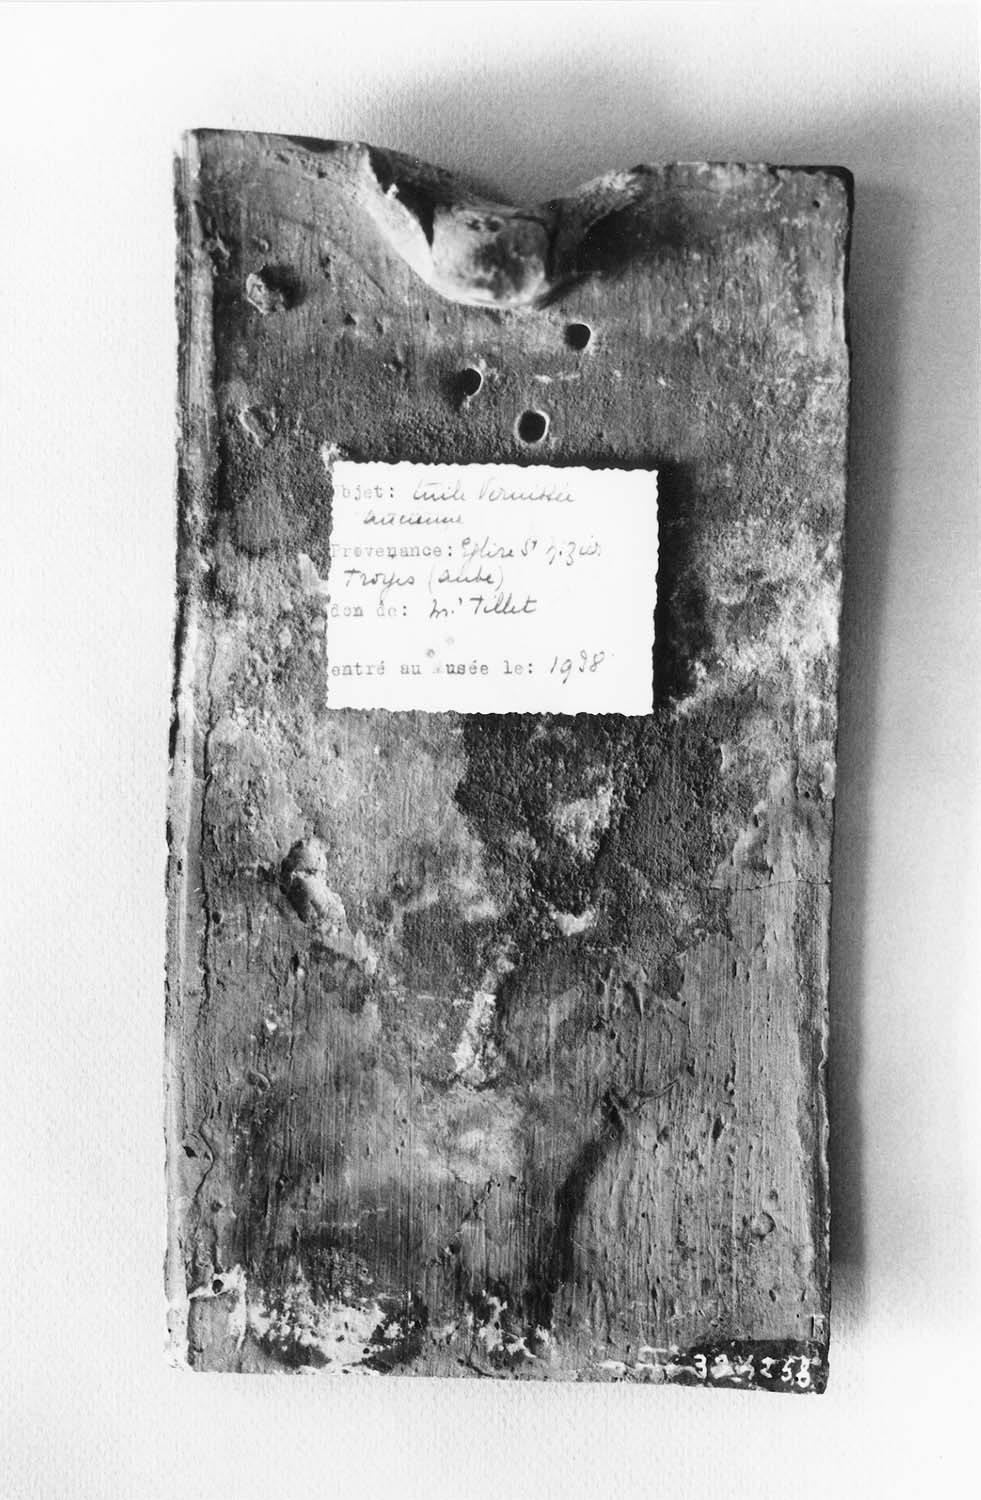 Objet: tuile Vernissée
ancienne
Provenance: Eglise St Nizier
Troyes (Aube)
don de: Mr Tillet
entré au Musée le: 1938